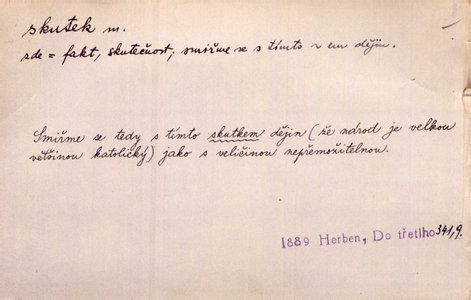 skutek m.
zde = fakt, skutečnost; smiřme se s tímto s em dějin.
Smiřme se tedy s tímto skutkem dějin (že národ je velkou
většinou katolický) jako s veličinou nepřemožitelnou.
1889 Herben, Do třetího 341,9.